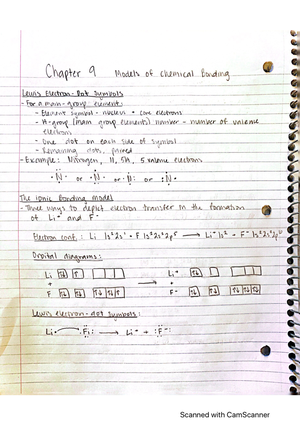 Chapter 9 Models of Chemical Bonding
Lewis Electron-Dot Symbols
- For a main-group element:
- Element symbol = nucleus + core electrons
- A-group (main group elements) number = number of valence
electrons
- One dot on each side of symbol
- Remaining dots, paired
- Example: Nitrogen, N, 5A, 5 valence electrons
·N· or ·N: or ·N· or :N·
The Ionic Bonding Model
- Three ways to depict electron transfer in the formation
of Li⁺ and F⁻
Electron conf.: Li 1s²2s¹ + F 1s²2s²2p⁵ → Li⁺ 1s² + F⁻ 1s²2s²2p⁶
Orbital diagrams:
Li ↑↓ ↑ → Li⁺ ↑↓
+ +
F ↑↓ ↑↓ ↑↓ ↑↓ ↑ F⁻ ↑↓ ↑↓ ↑↓ ↑↓ ↑↓
Lewis electron-dot symbols:
Li· + ·F: → Li⁺ + :F:⁻
Scanned with CamScanner